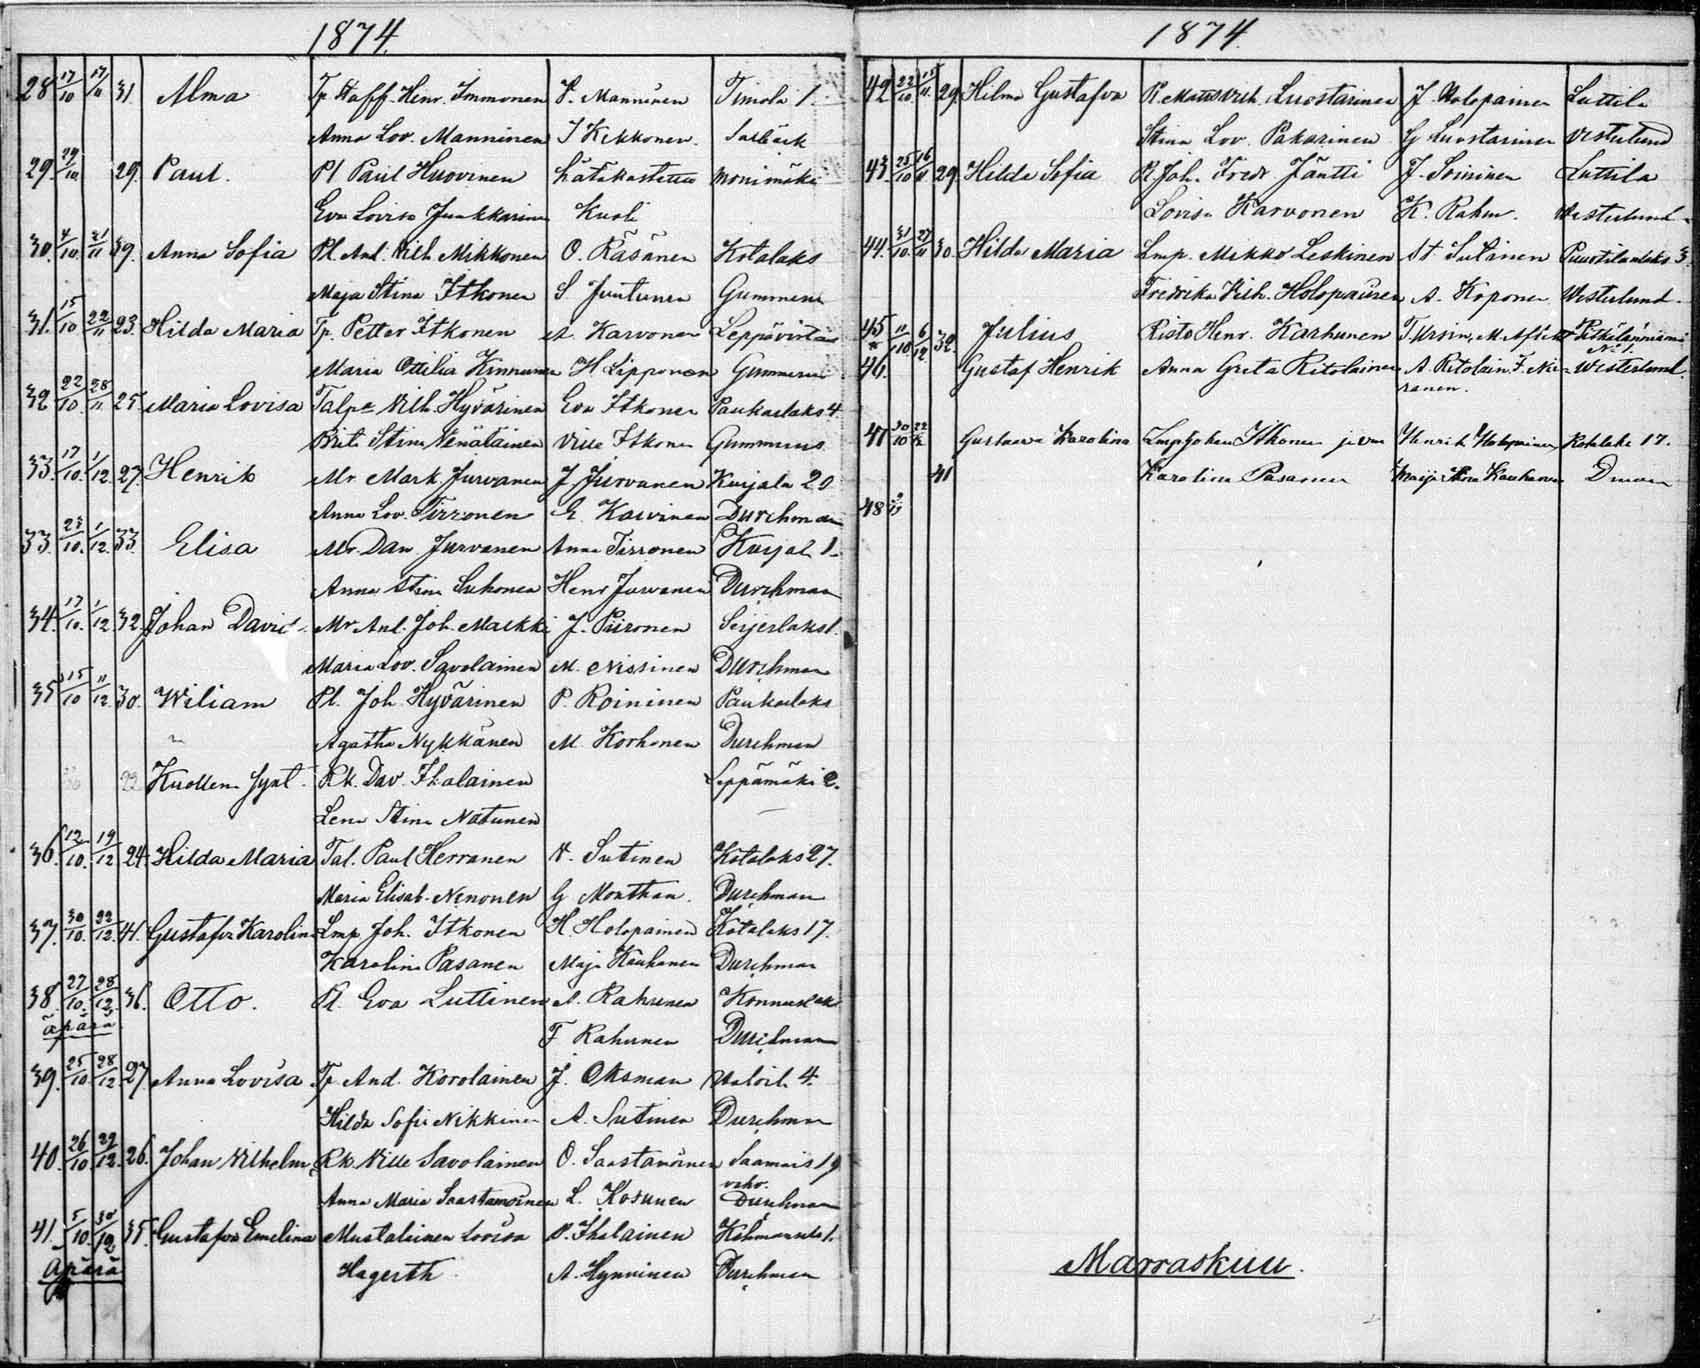 1874.
28 17/10 17/11 31. Alma Tp Staff. Henr. Immonen V. Manninen Timola 1.
Anna Lov. Manninen J Kekkonen.
29. 29/10. 29. Paul. Pl Paul Huovinen hätäkastettu Monimäki
Eva Lovisa Junkkarinen Kuoli
30. 4/10. 21/11 39. Anna Sofia Pl. And. Vilh. Mikkonen O. Räsänen Kotalaks
Maja Stina Itkonen S Juutunen Gummerus
31. 15/10 22/11 23. Hilda Maria Tp. Petter Itkonen A. Karvonen Leppävirta
Maria Ottilia Kinnunen H. Lipponen Gummerus
32 22/10. 28/11 25. Maria Lovisa Talp. Vilh. Hyvärinen Eva Itkonen Paukarlaks 4.
Brit. Stina Venäläinen Ville Itkonen Gummerus
33. 17/10. 1/12 27. Henrik Mr Mark Jurvanen J Jurvanen Kurjala 20
Anna Lov. Tirronen E. Karvinen Durchman
33. 23/10. 1/12. 33. Elisa Mr. Dav. Jurvanen Anna Tirronen Kurjal 1.
Anna Stina Suhonen Henr Jurvanen Durchman
34. 17/10. 1/12 32. Johan David. Mr. And. Joh. Markki J. Piironen Serjerlaks 1.
Maria Lov. Savolainen M. Nissinen Durchman
35 15/10 11/12. 30. Wiliam Pl. Joh Hyvärinen P. Roininen Paukarlaks
Agatha Nykkänen M. Korhonen Durchman
Kuollena synt. Rk. Dav. Ikalainen Leppämäki 2.
Lena Stina Natunen
36. 12/10. 19/12 24. Hilda Maria Tal. Paul Herranen V. Sutinen Kotalaks 27.
Maria Elisab. Nenonen G Monthan. Durchman
37. 30/10. 22/12. 41. Gustafva Karolina Lmp Joh. Itkonen H. Holopainen Kotalaks 17.
Karolina Pasanen Maja Kauhanen Durchman
38. 27/10. 28/12. 36. Otto. Pl. Eva Luttinen A. Rahunen Konnuslaks
äpärä F Rahunen Durchman
39. 25/10. 28/12 27 Anna Lovisa Tp And. Korolainen J. Oksman 4.
Hilda Sofia Nikkinen A. Sutinen Durchman
40. 26/10 29/12. 26. Johan Vilhelm Rk. Ville Savolainen O. Saastamoinen Saamais 19
Anna Maria Saastamoinen L. Kosunen Durchman
41. 5/10. 30/12 35. Gustafva Emelina Mustalainen Lovisa P. Ikalainen 1.
Äpärä Hagerth. A. Hynninen Durchman
1874.
42 22/10 15/11. 29. Hilma Gustafva R. Matts Vilh. Luostarinen J Holopainen Luttila
Stina Lov. Pakarinen G Luostarinen Vesterlund
43. 25/10 16/11 29. Hilda Sofia R Joh. Fredr Jäntti J. Soininen Luttila
Lovisa Karvonen K. Rahun. Vesterlund
44. 31/10 27/11 30. Hilda Maria Lmp. Mikko Leskinen St Sutinen 3.
Fredrika Vilh. Holopainen A. Koponen Westerlund.
45 11/10 6/12 32. Julius Risto Henr. Karhunen T. Ursin,
46. Gustaf Henrik Anna Greta Ritolainen A. Ritolain. F. Nii- Westerlund.
ranen.
47 30/10 22/12 Gustava Karolina Lmp Johan Itkonen ja vm Henrik Holopainen Kotalaks 17.
41 Karolina Pasanen Maija Stina Kauhanen
48
Marraskuu.